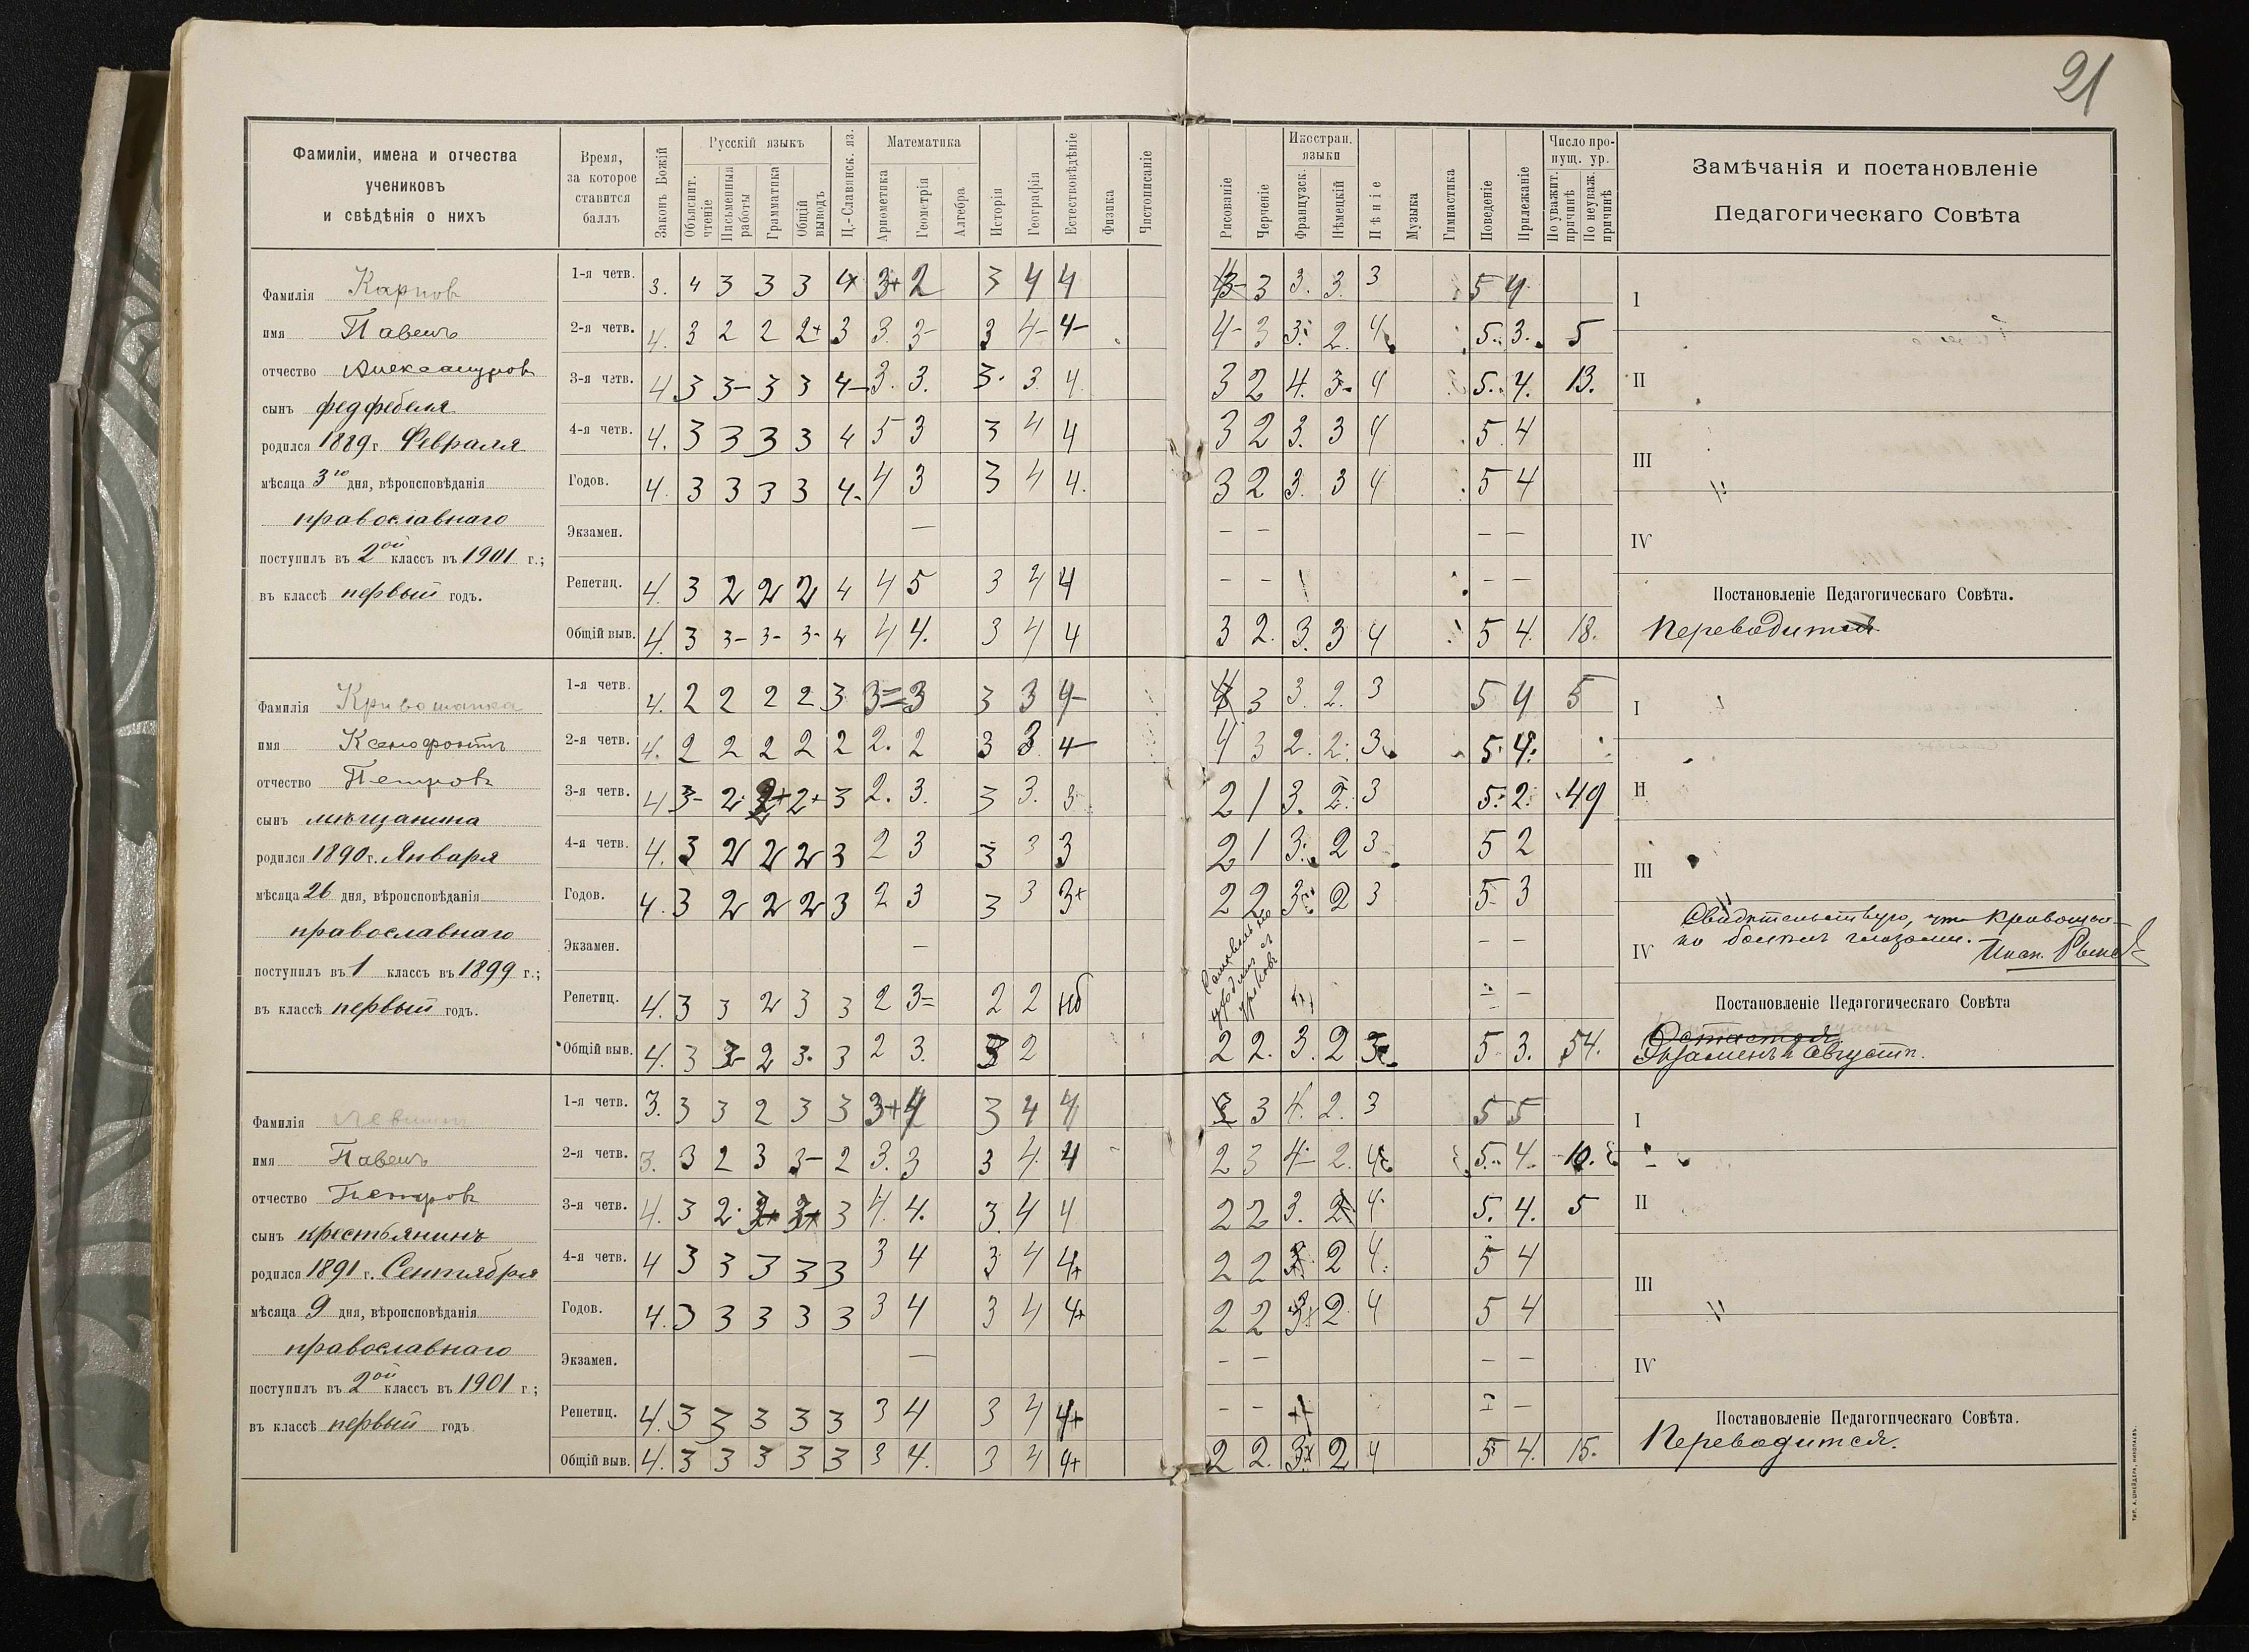 21
Фамиліи, имена и отчества
учениковъ
и свѣдѣнія о нихъ
Время,
за которое
ставится
баллъ
Законъ Божій
Русскій языкъ
Объяснит. чтеніе
Письменныя работы
Грамматика
Общій выводъ
Ц.-Славянск. яз.
Математика
Ариѳметика
Геометрія
Алгебра
Исторія
Географія
Естествовѣдѣніе
Физика
Чистописаніе
Рисованіе
Черченіе
Иностран. языки
Французск.
Нѣмецкій
Пѣніе
Музыка
Гимнастика
Поведеніе
Прилежаніе
Число пропущ. ур.
По уважит. причинѣ
По неуваж. причинѣ
Замѣчанія и постановленіе
Педагогическаго Совѣта
Фамилія Карпов
имя Павелъ
отчество Александров
сынъ фельдфебеля
родился 1889 г. Февраля
мѣсяца 3го дня, вѣроисповѣданія
православнаго
поступилъ въ 2ой классъ въ 1901 г.;
въ классѣ первый годъ.
1-я четв. 3. 4 3 3 3 4 3+ 2 3 4 4 3 3. 3. 3 5 4
2-я четв. 4. 3 2 2 2+ 3 3. 3- 3 4- 4- 4- 3 3. 2. 4 5. 3. 5
3-я четв. 4 3 3- 3 3 4- 3. 3. 3. 3. 4 3 2 4. 3- 4 5. 4. 13.
4-я четв. 4. 3 3 3 3 4 5 3 3 4 4 3 2 3. 3 4 5. 4
Годов. 4. 3 3 3 3 4- 4 3 3 4 4. 3 2 3. 3 4 5 4
Экзамен. — — — — —
Репетиц. 4. 3 2 2 2 4 4 5 3 4 4 — — — —
Общій выв. 4. 3 3- 3- 3- 4 4 4. 3 4 4 3 2. 3. 3 4 5 4. 18.
I
II
III
IV
Постановленіе Педагогическаго Совѣта.
Переводится.
Фамилія Кривошапка
имя Ксенофонтъ
отчество Петровъ
сынъ мѣщанина
родился 1890 г. Января
мѣсяца 26 дня, вѣроисповѣданія
православнаго
поступилъ въ 1 классъ въ 1899 г.;
въ классѣ первый годъ.
1-я четв. 4. 2 2 2 2 3 3= 3 3 3 4- 3 3. 2. 3 5 4 5
2-я четв. 4. 2 2 2 2 2 2. 2 3 3 4- 4 3 2. 2. 3 5. 4.
3-я четв. 4 3- 2. 2+ 2+ 3 2. 3. 3 3. 3 2 1 3. 2. 3 5. 2. 49
4-я четв. 4. 3 2 2 2 3 2 3 3 3 3 2 1 3. 2 3 5 2
Годов. 4. 3 2 2 2 3 2 3 3 3 3+ 2 2 3 2 3 5 3
Экзамен. — — —
Репетиц. 4. 3 3 2 3 3 2 3= 2 2 нб — —
Общій выв. 4. 3 3- 2 3. 3 2 3. 3 2 2 2. 3. 2 3 5 3. 54.
уходилъ съ уроковъ
I
II
III
Свидѣтельствую, что
IV
боленъ глазами.
Постановленіе Педагогическаго Совѣта
Остается
Экзаменъ въ Августѣ.
Фамилія
имя Павелъ
отчество Петровъ
сынъ крестьянинъ
родился 1891 г. Сентября
мѣсяца 9 дня, вѣроисповѣданія
православнаго
поступилъ въ 2ой классъ въ 1901 г.;
въ классѣ первый годъ
1-я четв. 3. 3 3 2 3 3 3+ 4 3 4 4 3 4. 2. 3 5 5
2-я четв. 3. 3 2 3 3- 2 3. 3 3 4. 4 2 3 4- 2. 4 5. 4. 10.
3-я четв. 4. 3 2. 3+ 3 4. 4. 3. 4 4 2 2 3. 2 4 5. 4. 5
4-я четв. 4 3 3 3 3 3 3 4 3 4 4+ 2 2 3 2 4. 5 4
Годов. 4. 3 3 3 3 3 3 4 3 4 4+ 2 2 3+ 2. 4 5 4
Экзамен. — — — — —
Репетиц. 4. 3 3 3 3 3 3 4 3 4 4+ — — — —
Общій выв. 4. 3 3 3 3 3 3 4. 3 4 4+ 2 2. 3+ 2 4 5 4. 15.
I
II
III
IV
Постановленіе Педагогическаго Совѣта.
Переводится.
ТИП. А. ШНЕЙДЕРА, НИКОЛАЕВЪ.